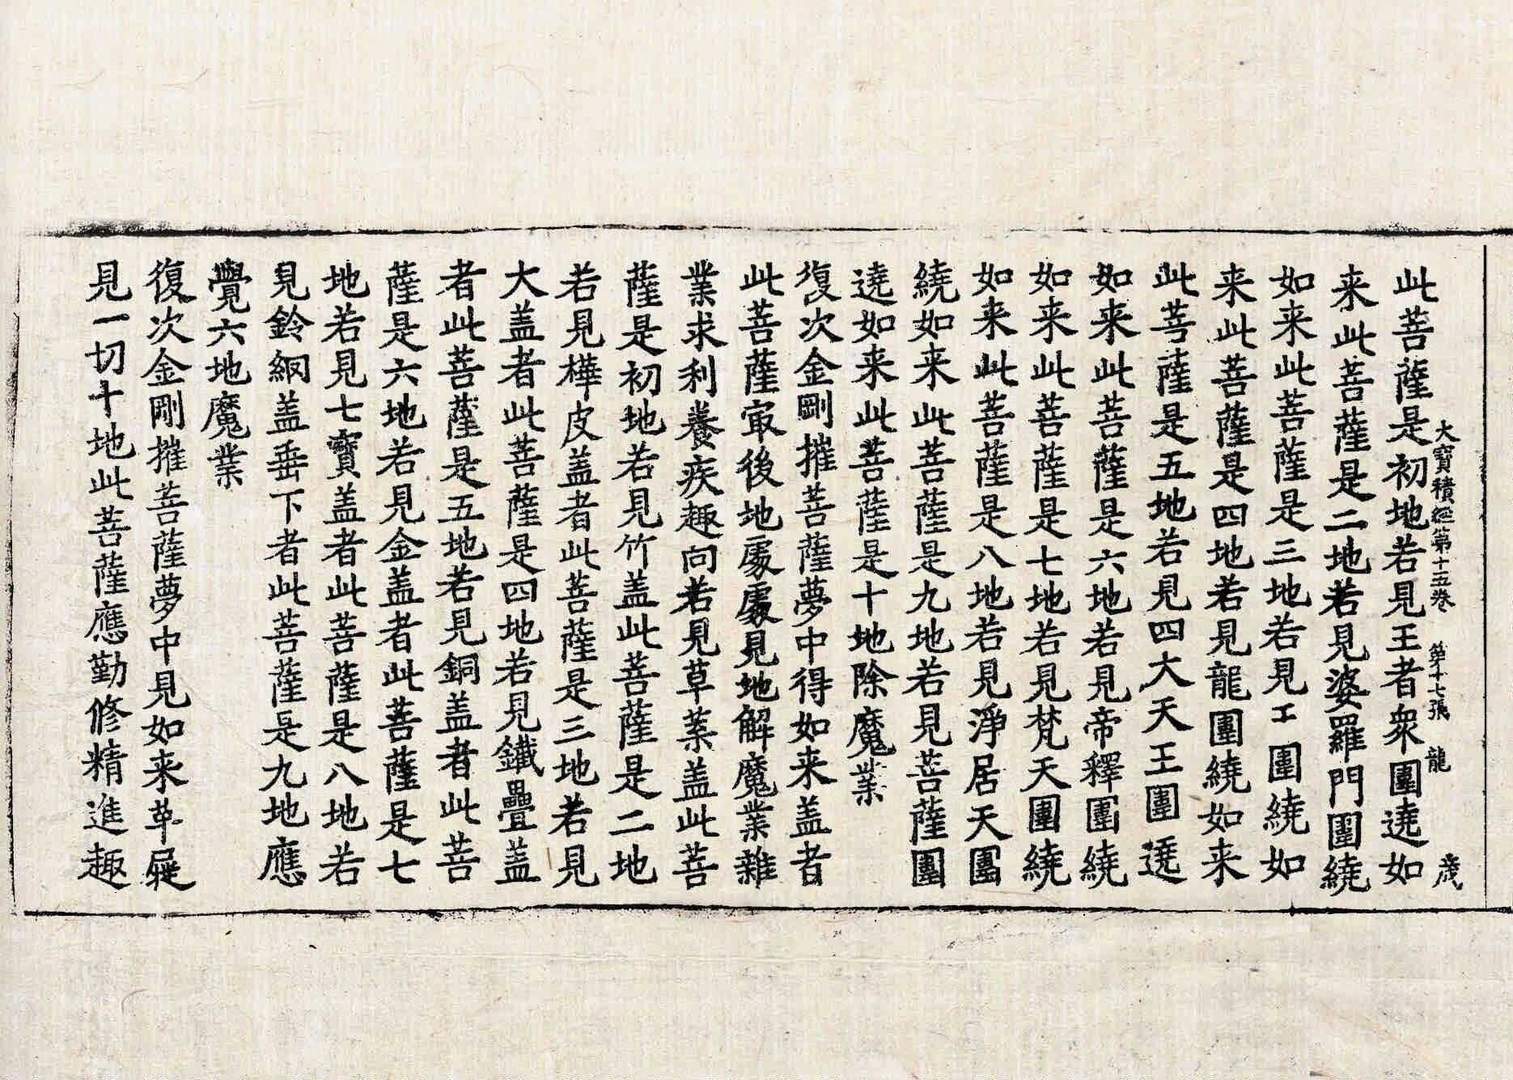 大寶積經第十五卷 第十七張 龍
此菩薩是初地若見王者衆圍遶如
来此菩薩是二地若見婆羅門圍繞
如来此菩薩是三地若見工圍繞如
来此菩薩是四地若見龍圍繞如来
此菩薩是五地若見四大天王圍遶
如来此菩薩是六地若見帝釋圍繞
如来此菩薩是七地若見梵天圍繞
如来此菩薩是八地若見淨居天圍
繞如来此菩薩是九地若見菩薩圍
遶如来此菩薩是十地除魔業
復次金剛摧菩薩夢中得如来盖者
此菩薩㝡後地處處見地解魔業雜
業求利養疾趣向若見草葉盖此菩
薩是初地若見竹盖此菩薩是二地
若見樺皮盖者此菩薩是三地若見
大盖者此菩薩是四地若見鐵疊盖
者此菩薩是五地若見銅盖者此菩
薩是六地若見金盖者此菩薩是七
地若見七寶盖者此菩薩是八地若
見鈴網盖垂下者此菩薩是九地應
覺六地魔業
復次金剛摧菩薩夢中見如来革屣
見一切十地此菩薩應勤修精進趣